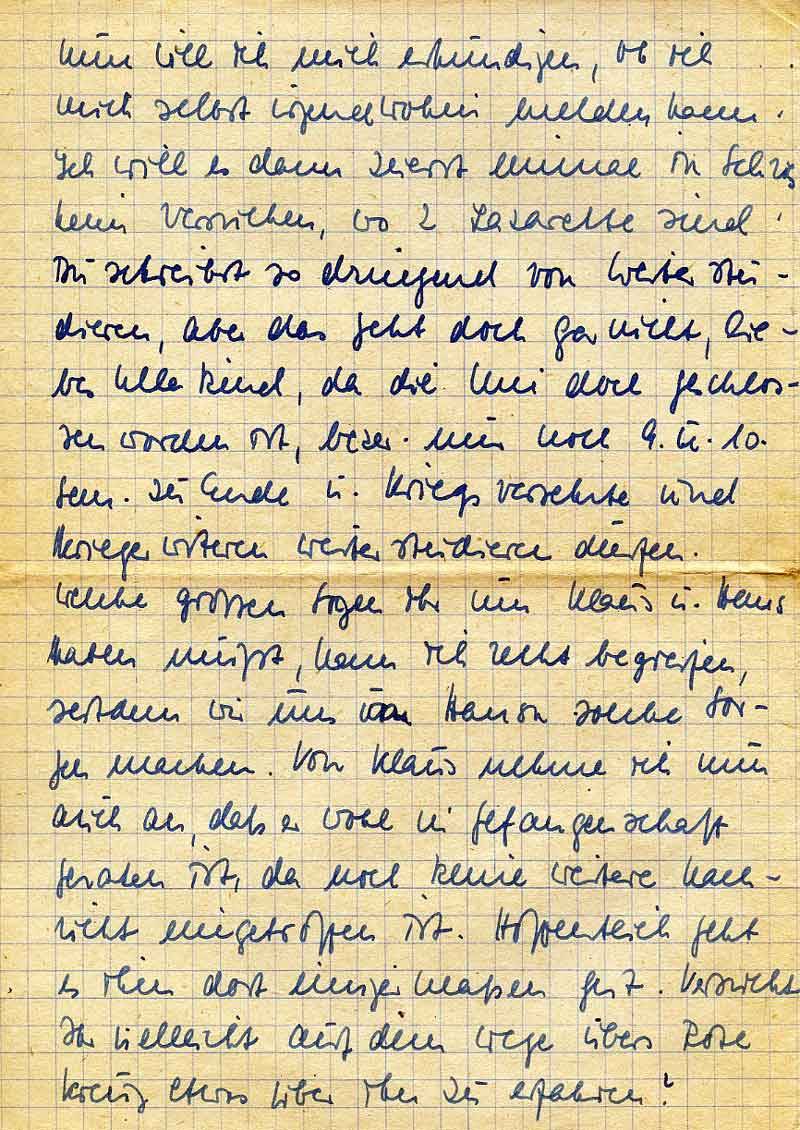 Nun will ich mich erkundigen, ob ich
mich selbst irgendwohin melden kann.
Ich will es dann zuerst einmal in
heim versuchen, wo 2 Lazarette sind!
Du schreibst so dringend von Weiterstu-
dieren, aber das geht doch gar nicht, lie-
bes Ulla Kind, da die Uni doch geschlos-
sen worden ist, bezw. nur noch 9. u. 10.
Sem. zu Ende u. Kriegsversehrte und
Kriegerwitwen weiter studieren dürfen.
Welche großen Sorgen Ihr um Klaus u. Hans
haben müßt, kann ich recht begreifen,
seitdem wir uns um solche Sor-
gen machen. Von Klaus nehme ich nun
auch an, daß er wohl in Gefangenschaft
geraten ist, da noch keine weitere Nach-
richt eingetroffen ist. Hoffentlich geht
es ihm dort einigermaßen gut. Versucht
Ihr vielleicht auf dem Wege übers Rote
Kreuz etwas über ihn zu erfahren?